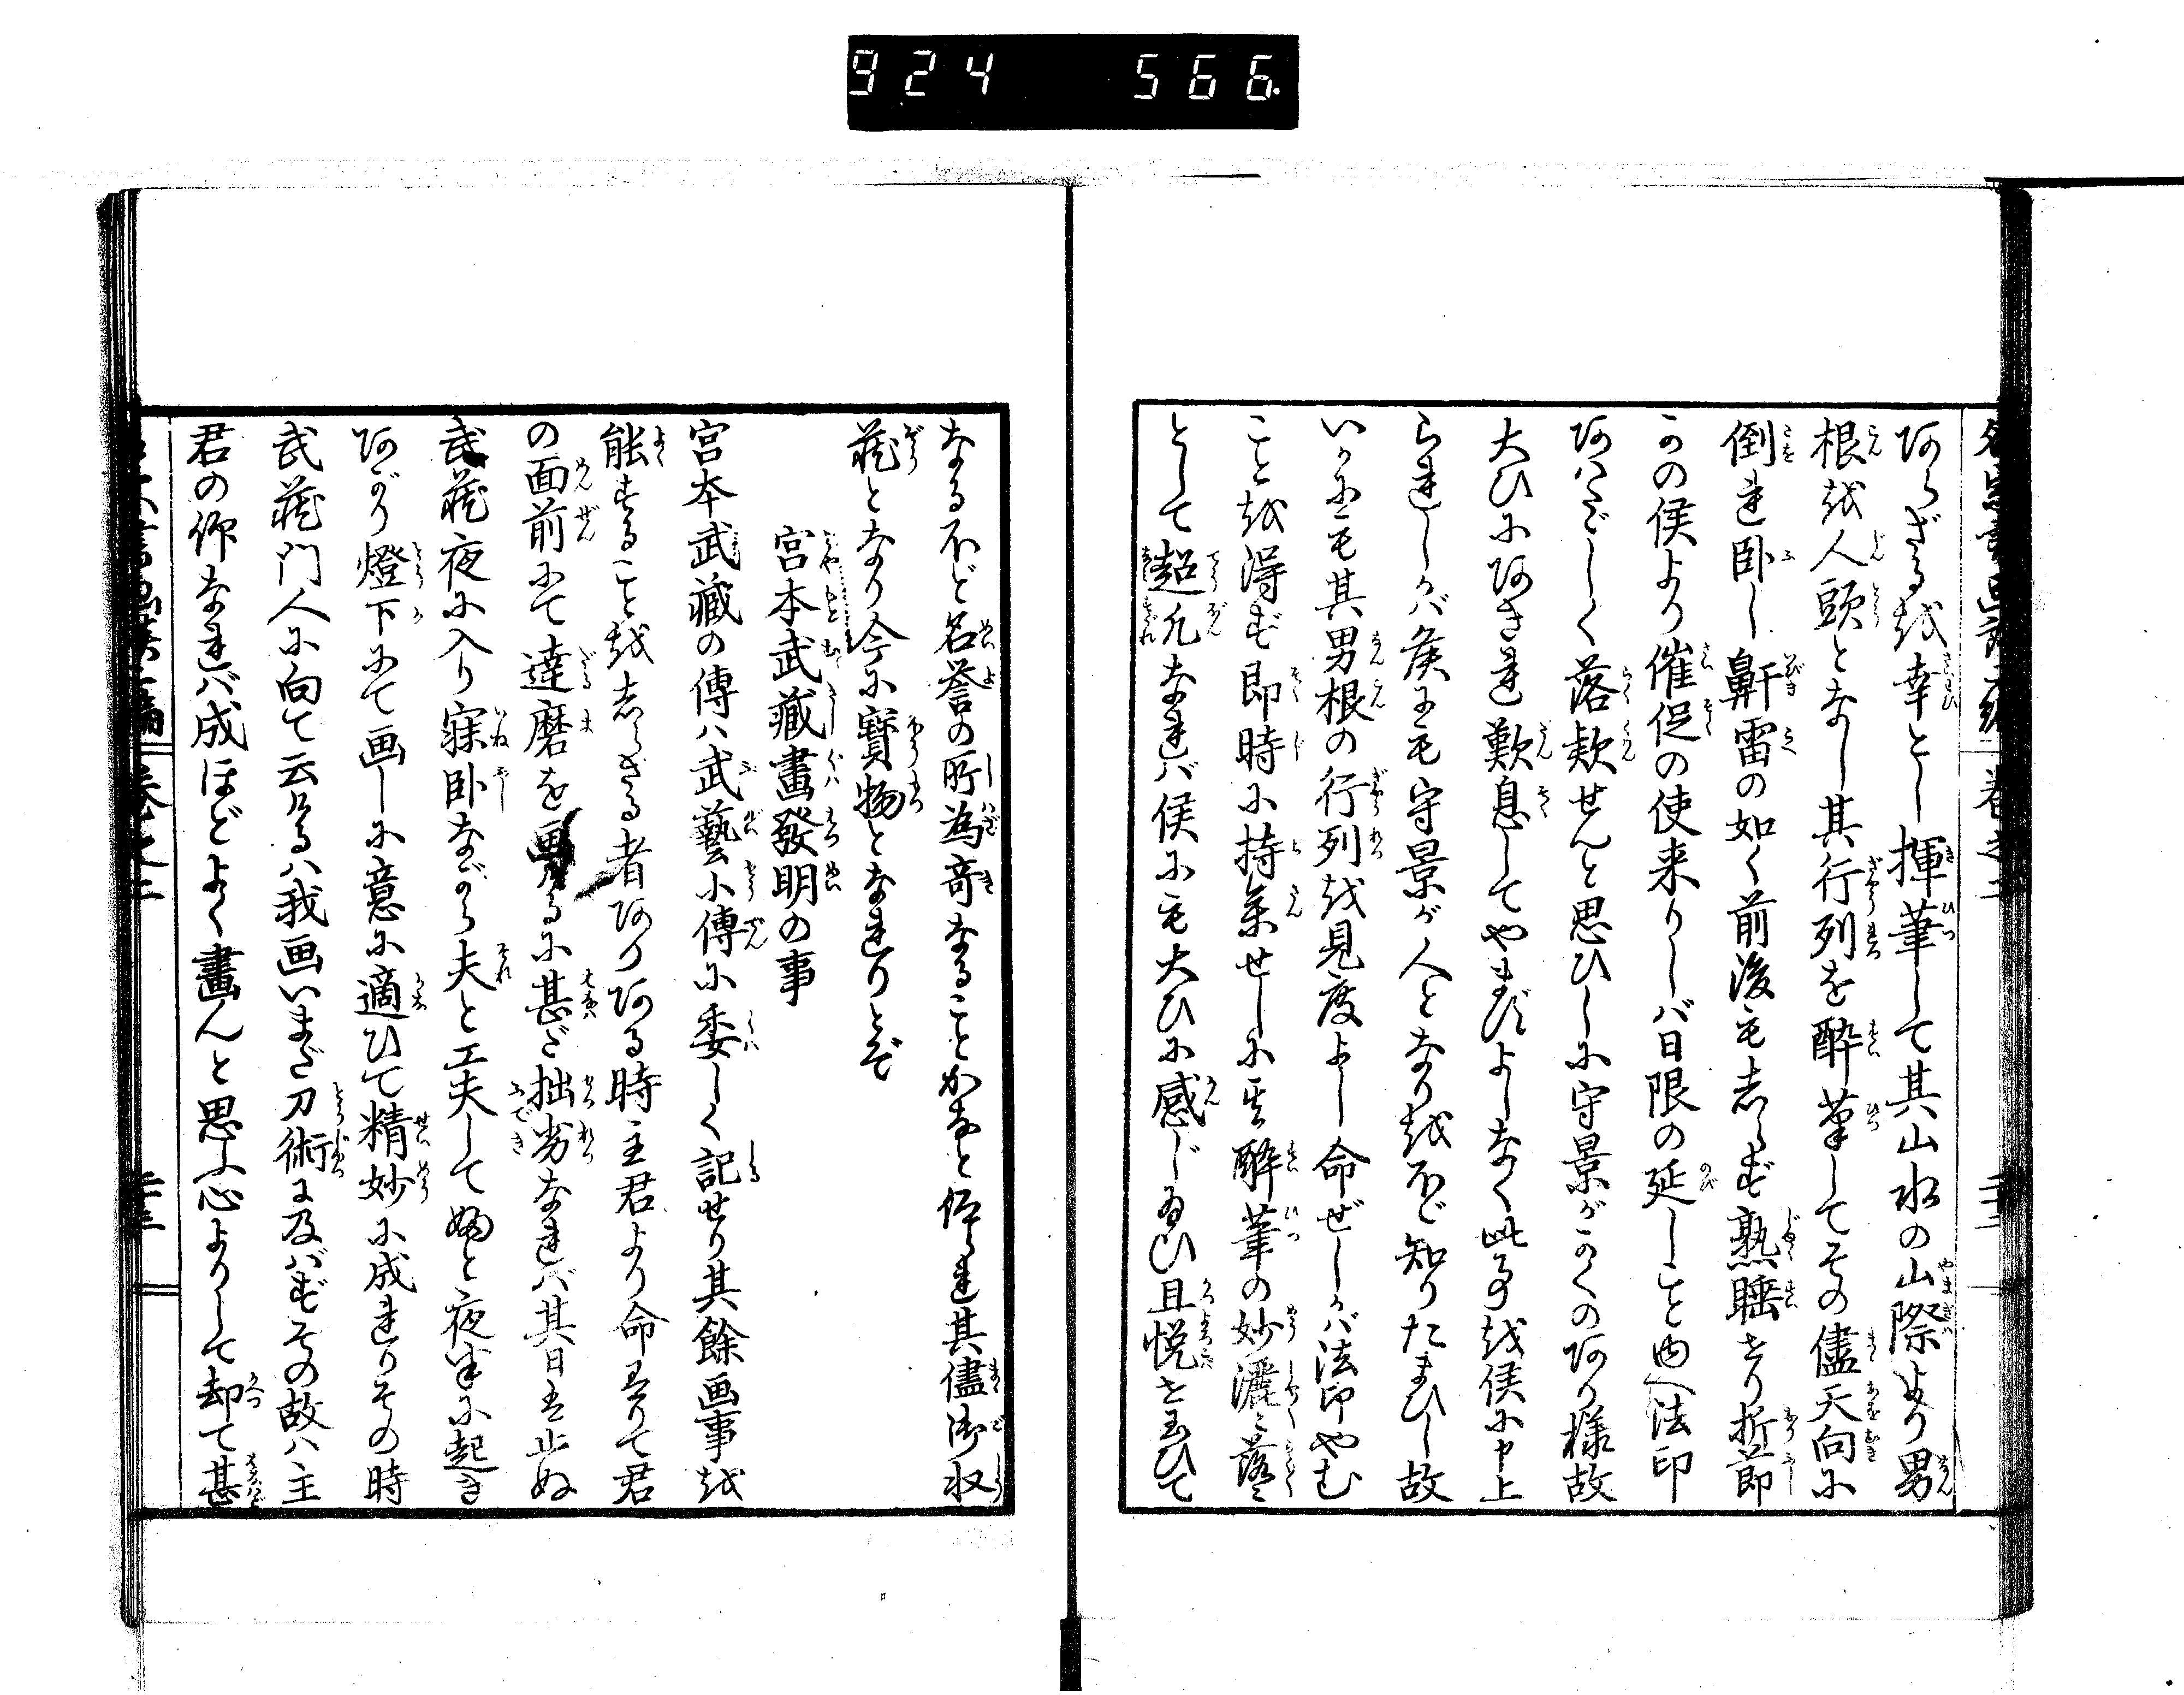 924 566.
あらざるを幸とし揮筆して其山水の山際より男
根を人頭となし其行列を酔筆してその儘天向に
倒れ臥し鼾雷の如く前後もしらず熟睡せり折節
かの侯より催促の使来りしバ日限の延しこと故法印
あハたゞしく落款せんと思ひしに守景がかくのあり様故
大ひにあきれ歎息してやまずよしなく此事を侯に申上
られしかバ侯にも守景が人となりをほゞ知りたまひし故
いかにも其男根の行列を見度よし命ぜしかバ法印やむ
こと を得ず即時に持参せしに其酔筆の妙灑〻落〻
として超凡なれバ侯にも大ひに感じ給ひ且悦せ玉ひて
なるほど名誉の所為奇なることかなと仰られ其儘御収
蔵となり今に寶物となれりとぞ
宮本武蔵畫發明の事
宮本武蔵の傳ハ武藝小傳に委しく記せり其餘画事を
能することをしらざる者ありある時主君より命ありて君
の面前にて達磨を画るに甚ご拙劣なれバ其日は止ぬ
武蔵夜に入り寐臥ながら夫と工夫して郷と夜半に起き
あがり燈下にて画しに意に適ひて精妙に成れりその時
武蔵門人に向て云けるハ我画いまだ刀術に及バずその故ハ主
君の仰なれバ成ほどよく畫んと思ふ心よりして却て甚